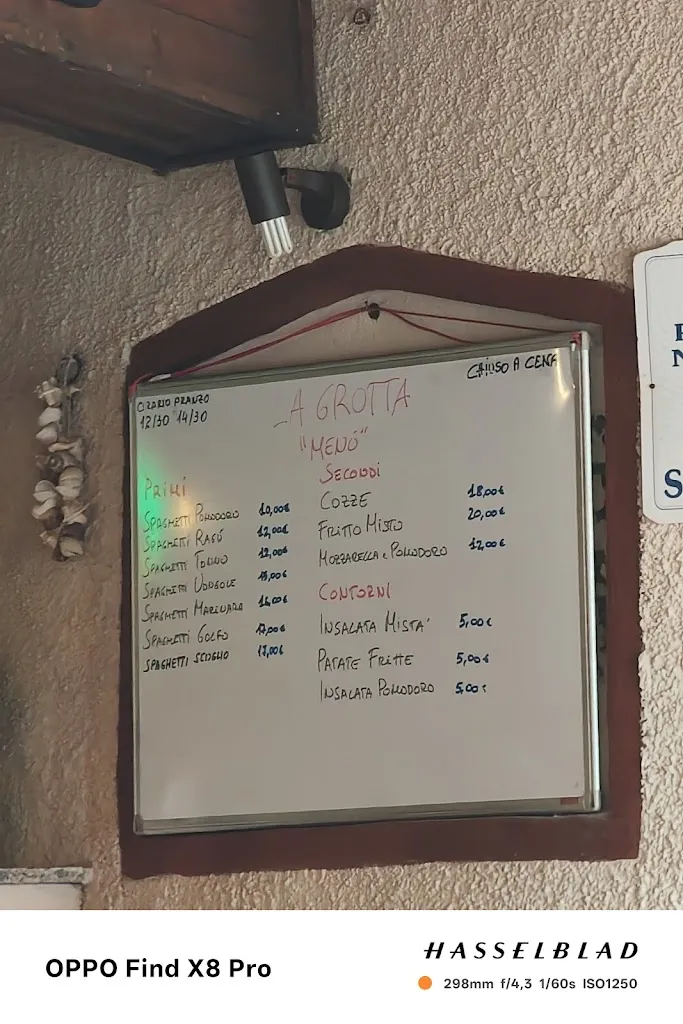 ORARIO PRANZO
12/30 14/30
CHIUSO A CENA
LA GROTTA
"MENÙ"
PRIMI
SPAGHETTI POMODORO 10,00€
SPAGHETTI RAGÙ 12,00€
SPAGHETTI TONNO 12,00€
SPAGHETTI VONGOLE
SPAGHETTI MARINARA 16,00€
SPAGHETTI GOLFO 17,00€
SPAGHETTI SCOGLIO 17,00€
SECONDI
COZZE 18,00€
FRITTO MISTO 20,00€
MOZZARELLA e POMODORO 12,00€
CONTORNI
INSALATA MISTA' 5,00€
PATATE FRITTE 5,00€
INSALATA POMODORO 5,00€
S
OPPO Find X8 Pro
HASSELBLAD
298mm f/4,3 1/60s ISO1250